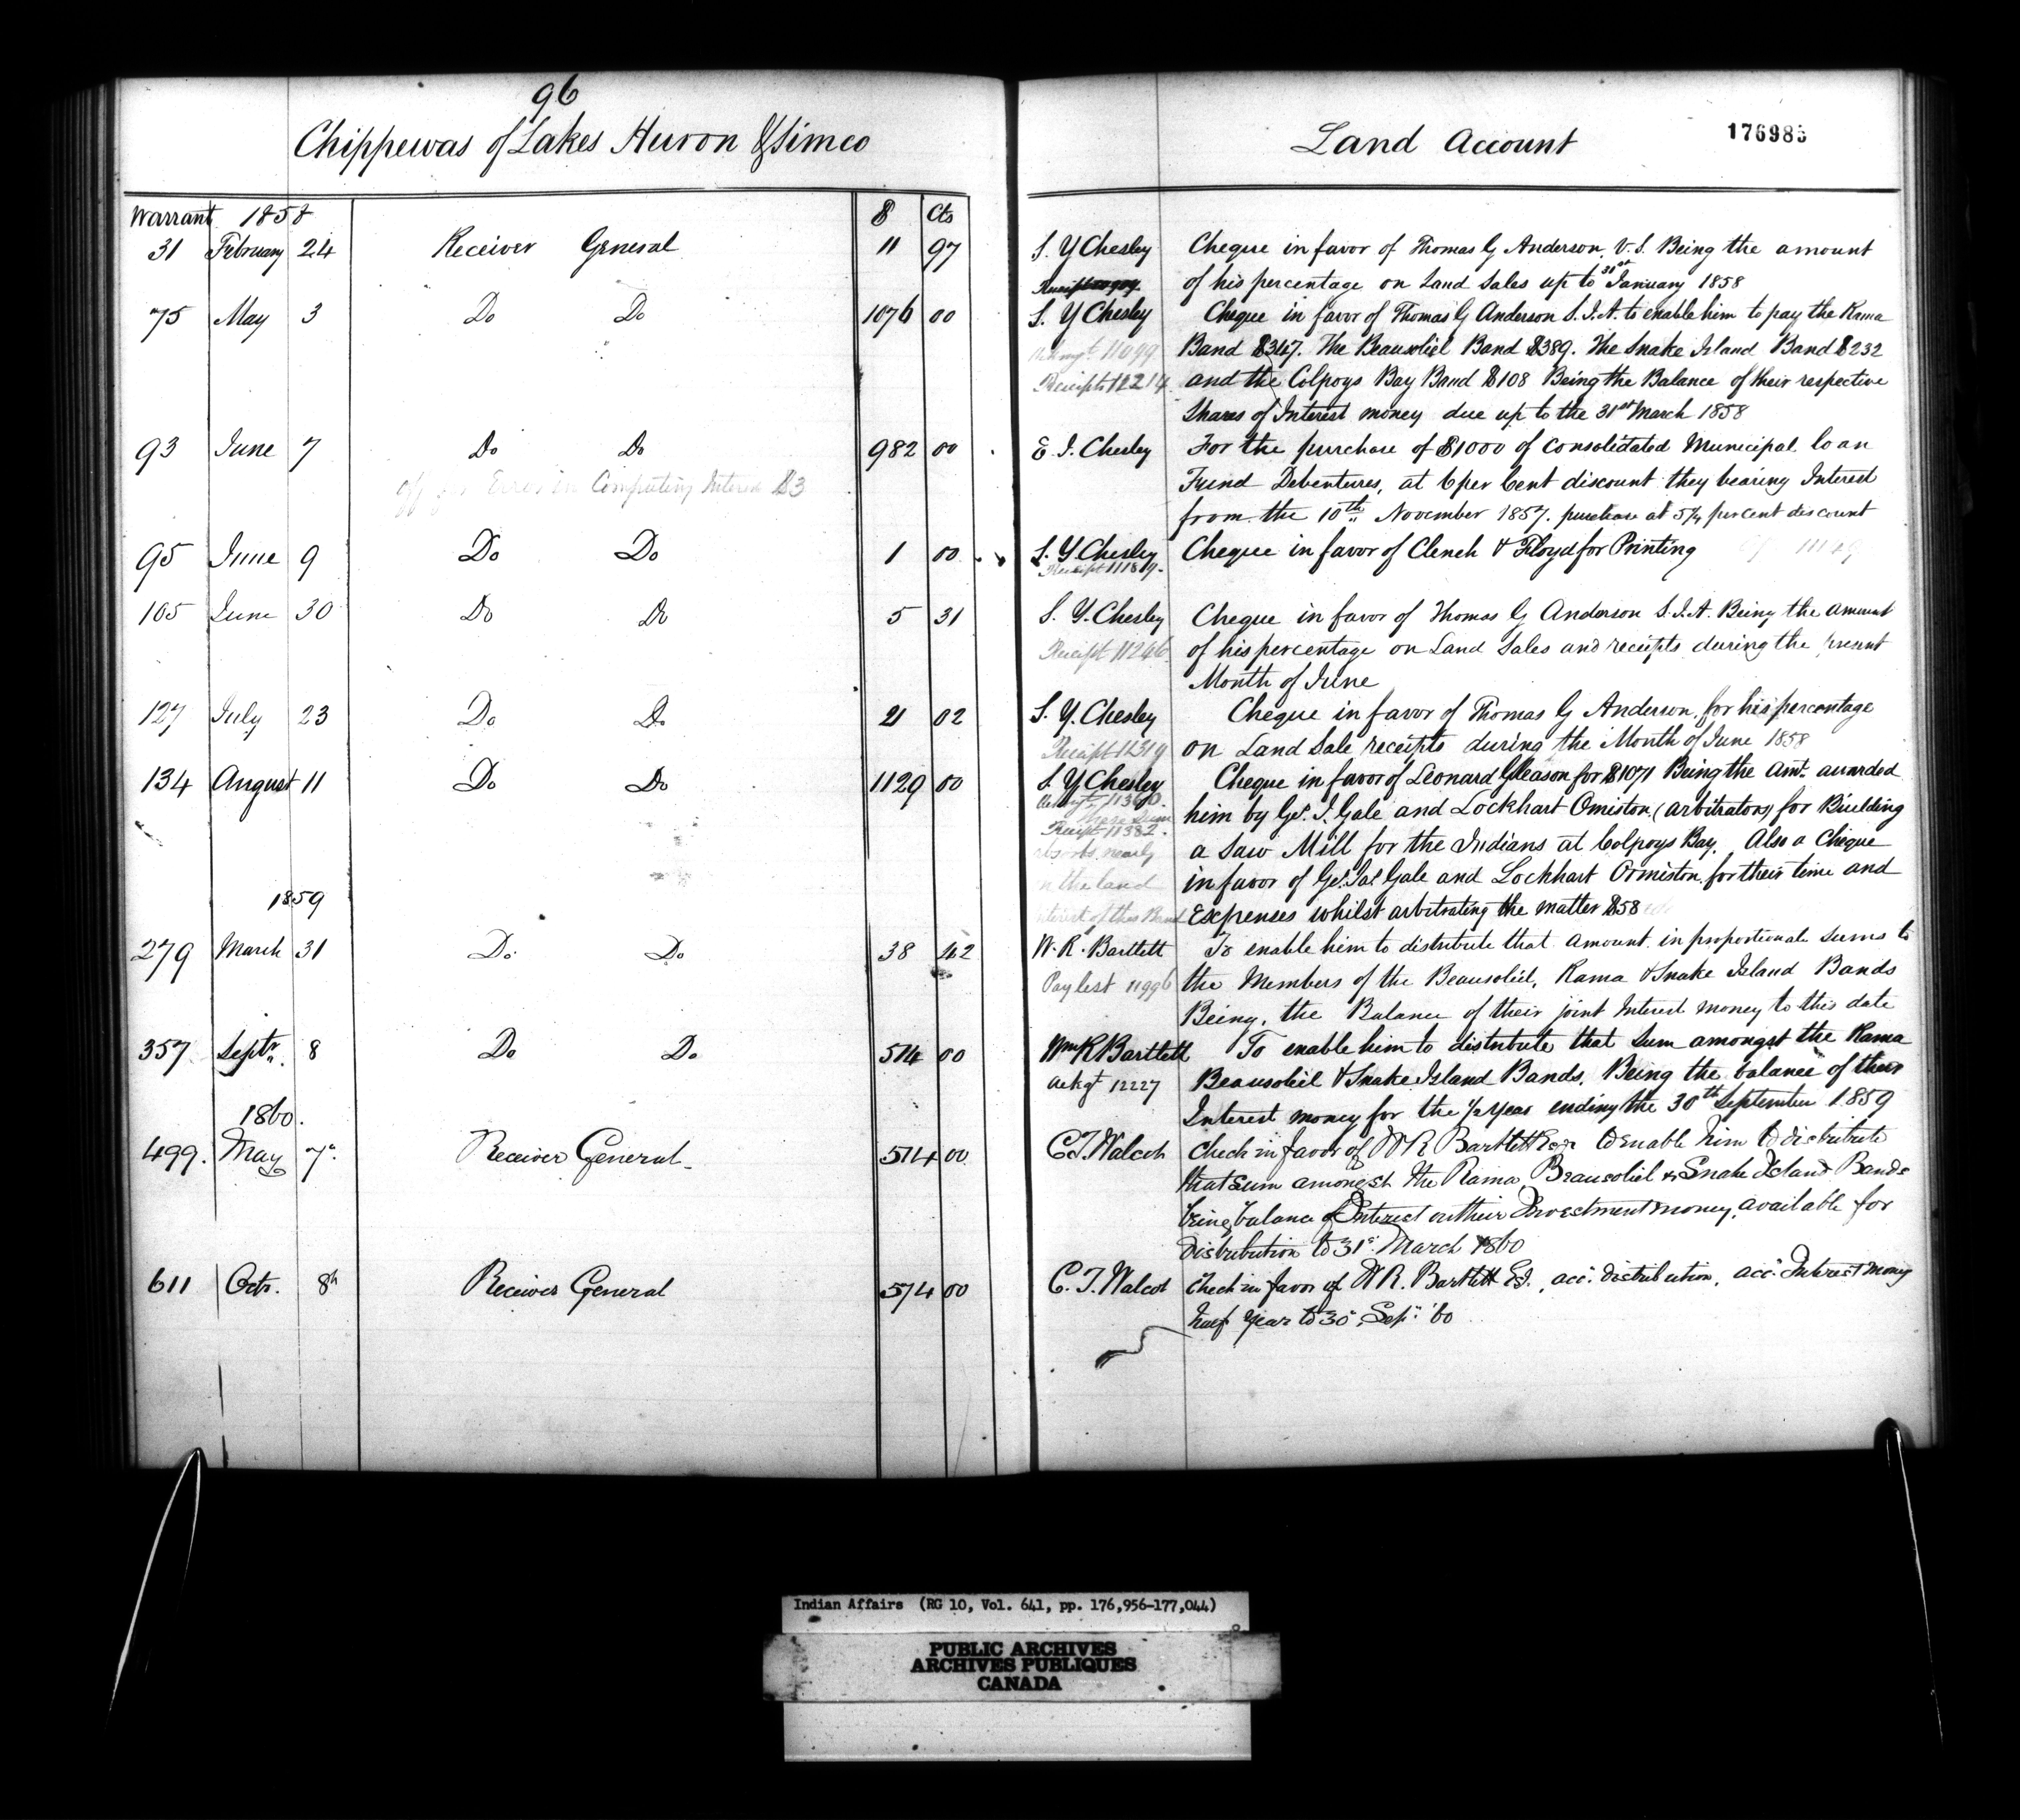 96
Chippewas of Lakes Huron & Simco
Land Account
176985
Warrant 1858 $ Cts
31 February 24 Receiver General 11 97 S. Y Chesley Cheque in favor of Thomas G Anderson, V.S. Being the amount
of his percentage on Land Sales up to 31st January 1858
75 May 3 Do Do 1076 00 S. Y Chesley Cheque in favor of Thomas G Anderson S.I.A. to enable him to pay the Rama
11099 Band $347. The Beausoliel Band $389. The Snake Island Band $232
Receipts 12214 and the Colpoys Bay Band $108 Being the Balance of their respective
Shares of Interest money due up to the 31st March 1858
93 June 7 Do Do 982 00 E. I. Chesley For the purchase of $1000 of Consolidated Municipal loan
Error in Computing Interest $3 Fund Debentures, at 6 per Cent discount they bearing Interest
from the 10th November 1857. purchase at 5¼ percent discount
95 June 9 Do Do 1 00 S. Y Chesley Cheque in favor of Clench & Floyd for Printing
Receipt 11189.
105 June 30 Do Do 5 31 S. Y. Chesley Cheque in favor of Thomas G Anderson S.I.A. Being the amount
Receipt 11246 of his percentage on Land Sales and receipts during the present
Month of June
127 July 23 Do Do 21 02 S. Y. Chesley Cheque in favor of Thomas G Anderson, for his percentage
Receipt 12319 on Land Sale receipts during the Month of June 1858
134 August 11 Do Do 1129 00 S. Y Chesley Cheque in favor of Leonard Gleason for $1071 Being the Amt. awarded
11360. him by Geo. I. Gale and Lockhart Omiston (arbitrators) for Building
Receipt 11382. a Saw Mill for the Indians at Colpoys Bay. Also a Cheque
nearly
the land in favor of Geo. Jas Gale and Lockhart Ormiston for their time and
1859
of this Band Expenses whilst arbitrating the matter $58
279 March 31 Do Do 38 42 W. R. Bartlett To enable him to distribute that amount in proportionate sums to
Paylist 11996 the Members of the Beausoliel, Rama & Snake Island Bands
Being, the Balance of their joint Interest money to this date
357 Septr. 8 Do Do 574 00 Wm R Bartlett To enable him to distribute that Sum amongst the Rama
Ackgt 12227 Beausoliel & Snake Island Bands. Being the balance of their
Interest money for the ½ year ending the 30th September 1859
1860.
499. May 7. Receiver General 574 00 C. T. Walcot Check in favor of W R Bartlett Esqr to enable him to distribute
that sum amongst the Rama, Beausoliel & Snake Island Bands
being balance of Interest on their Investment money, available for
distribution to 31st March 1860
611 Octr. 8th Receiver General 574 00 C. T. Walcot Check in favor of W R. Bartlett Es. acc. distribution, acc. Interest money
half year to 30. Sep. '60
Indian Affairs (RG 10, Vol. 641, pp. 176,956-177,044)
PUBLIC ARCHIVES
ARCHIVES PUBLIQUES
CANADA